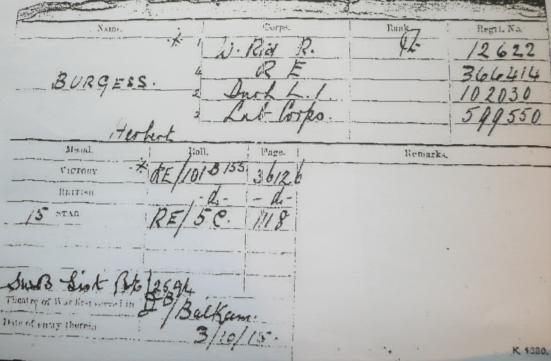 Name. Corps. Rank Regtl. No.
* 1 W. Rid R. 12622
4 R E 366414
BURGESS. 2 Durh L.I. 102030
3 Lab Corps. 599550
Herbert
Medal. Roll. Page. Remarks.
VICTORY * RE/101 B 155 3612
BRITISH -do- -do-
15 STAR RE/5C. 118
Theatre of War first served in /Balkan.
Date of entry therein 3/10/15.
K 1380.